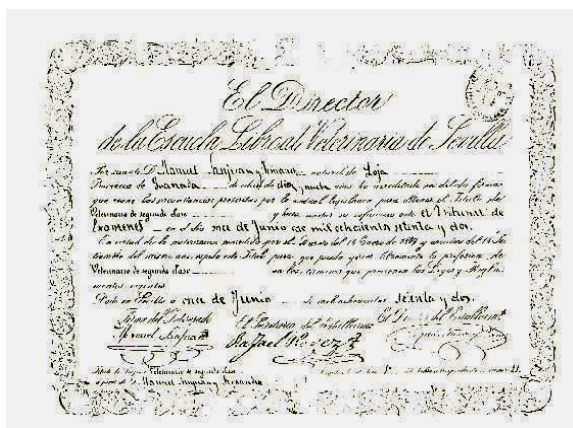 El Director
de la Escuela Libre de Veterinaria de Sevilla
Por cuanto D. Manuel Sanjuan y natural de Loja
Provincia de Granada de edad de años ha acreditado en debida forma
que reune las circunstancias prescritas por la actual legislacion para obtener el Titulo de
Veterinario de segunda clase y hecho constar su suficiencia ante el Tribunal de
Examenes en el dia once de Junio de mil ochocientos setenta y dos.
En virtud de la autorizacion concedida por el Decreto del 14 de Enero de 1869 y circular del 14 Se
tiembre del mismo año, expido este Titulo para que pueda ejercer libremente la profesion de
Veterinario de segunda clase en los terminos que previenen las Leyes y Regla
mentos vigentes
Dado en Sevilla á once de Junio de mil ochocientos setenta y dos.
Firma del Interesado El Secretario del Establecimto. El Director del Establecimto.
Manuel Sanjuan Rafael
Titulo de Veterinario de segunda clase
á favor de D. Manuel Sanjuan y